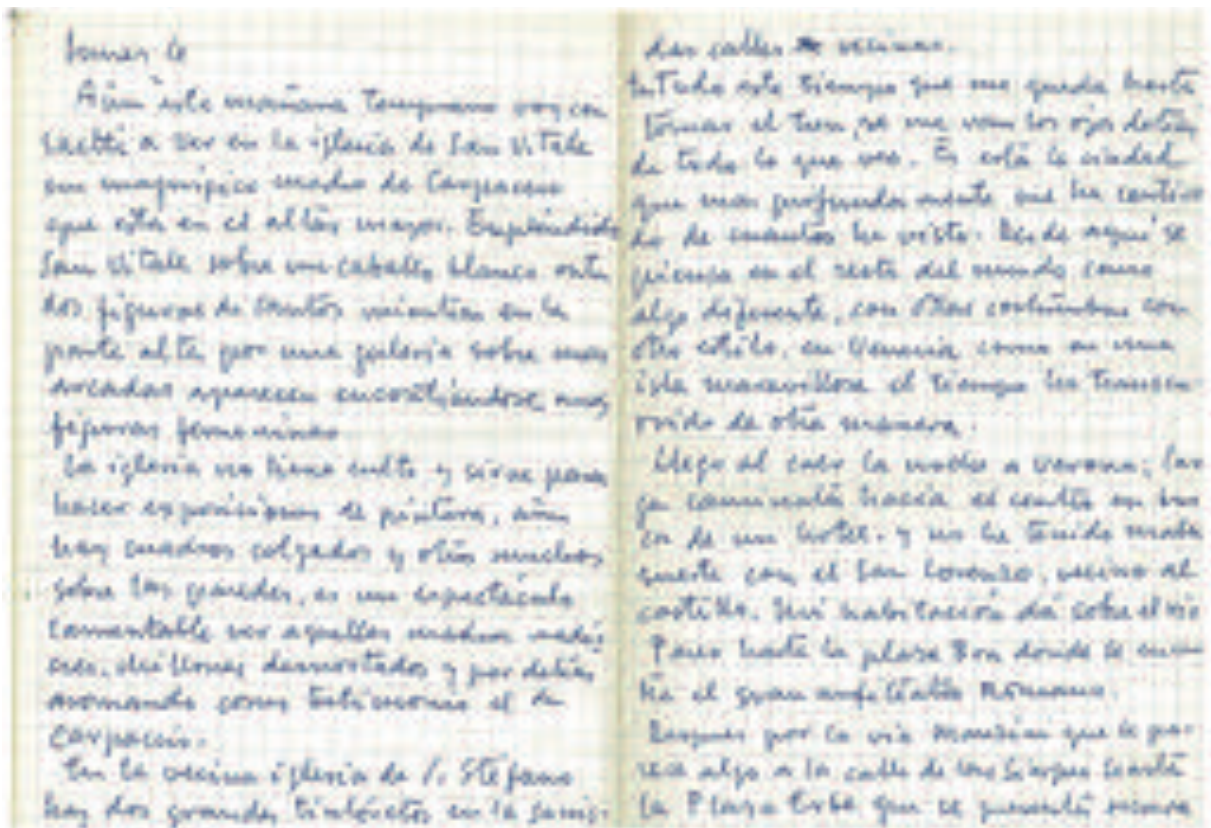 Aún esta mañana temprano voy con
a ver en la iglesia de San Vitale
un magnífico cuadro de Carpaccio
que está en el altar mayor. Esplendido
San Vitale sobre un caballo blanco entre
dos figuras de santos mientras en la
parte alta por una galería sobre unas
arcadas aparecen unas
figuras femeninas
La iglesia no tiene culto y sirve para
hacer exposiciones de pintura, aún
hay cuadros colgados y otros muchos
sobre las paredes, es un espectáculo
lamentable ver aquellos cuadros
desmontados y por detrás
asomando como testimonio el de
Carpaccio.
En la vecina iglesia de S. Stefano
hay dos grandes tintorettos en la
das calles vecinas.
Todo este tiempo que me queda hasta
tomar el tren, se me van los ojos detrás
de todo lo que veo. Es esta la ciudad
que mas profundamente me ha cautiva
do de cuantas he visto. Desde aquí se
piensa en el resto del mundo como
algo diferente, con otras costumbres con
otro estilo, en Venecia como en una
isla maravillosa el tiempo ha transcu-
rrido de otra manera.
Llego al caer la noche a Verona; lar
ga caminata hacia el centro en bus
ca de un hotel. y no he tenido mala
suerte con el San Lorenzo, vecino al
castillo. Mi habitación dá sobre el rio
Paseo hasta la plaza Bra donde se encuen
tra el gran anfiteatro Romano.
Despues por la via que se pa-
rece algo a la calle de las Sierpes hasta
la Plaza Erbe que se presenta